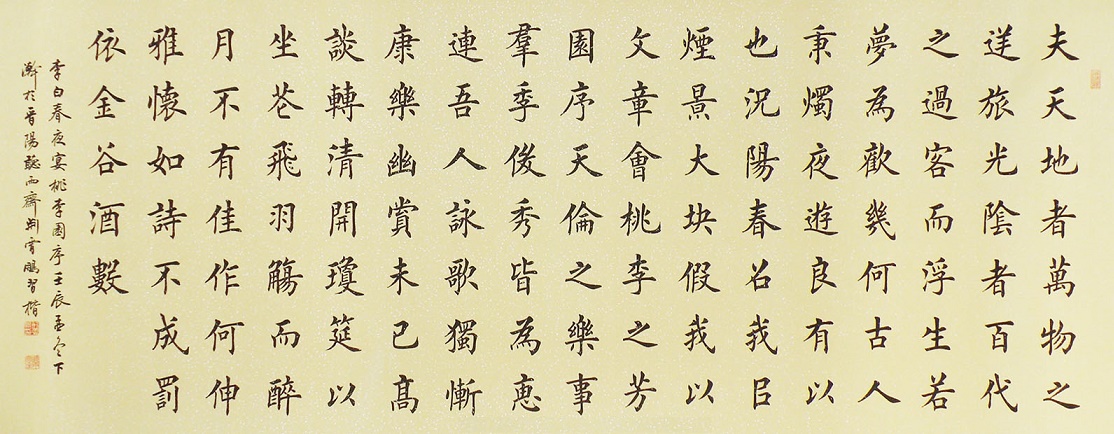 夫天地者萬物之
逆旅光陰者百代
之過客而浮生若
夢為歡幾何古人
秉燭夜遊良有以
也況陽春召我㠯
煙景大块假我以
文章會桃李之芳
園序天倫之樂事
羣季俊秀皆為惠
連吾人詠歌獨慚
康樂幽賞未已高
談轉清開瓊筵以
坐花飛羽觴而醉
月不有佳作何伸
雅懷如詩不成罰
依金谷酒數
李白春夜宴桃李園序壬辰孟冬下
澣於晉陽聽雨齋劉霄鵬習楷